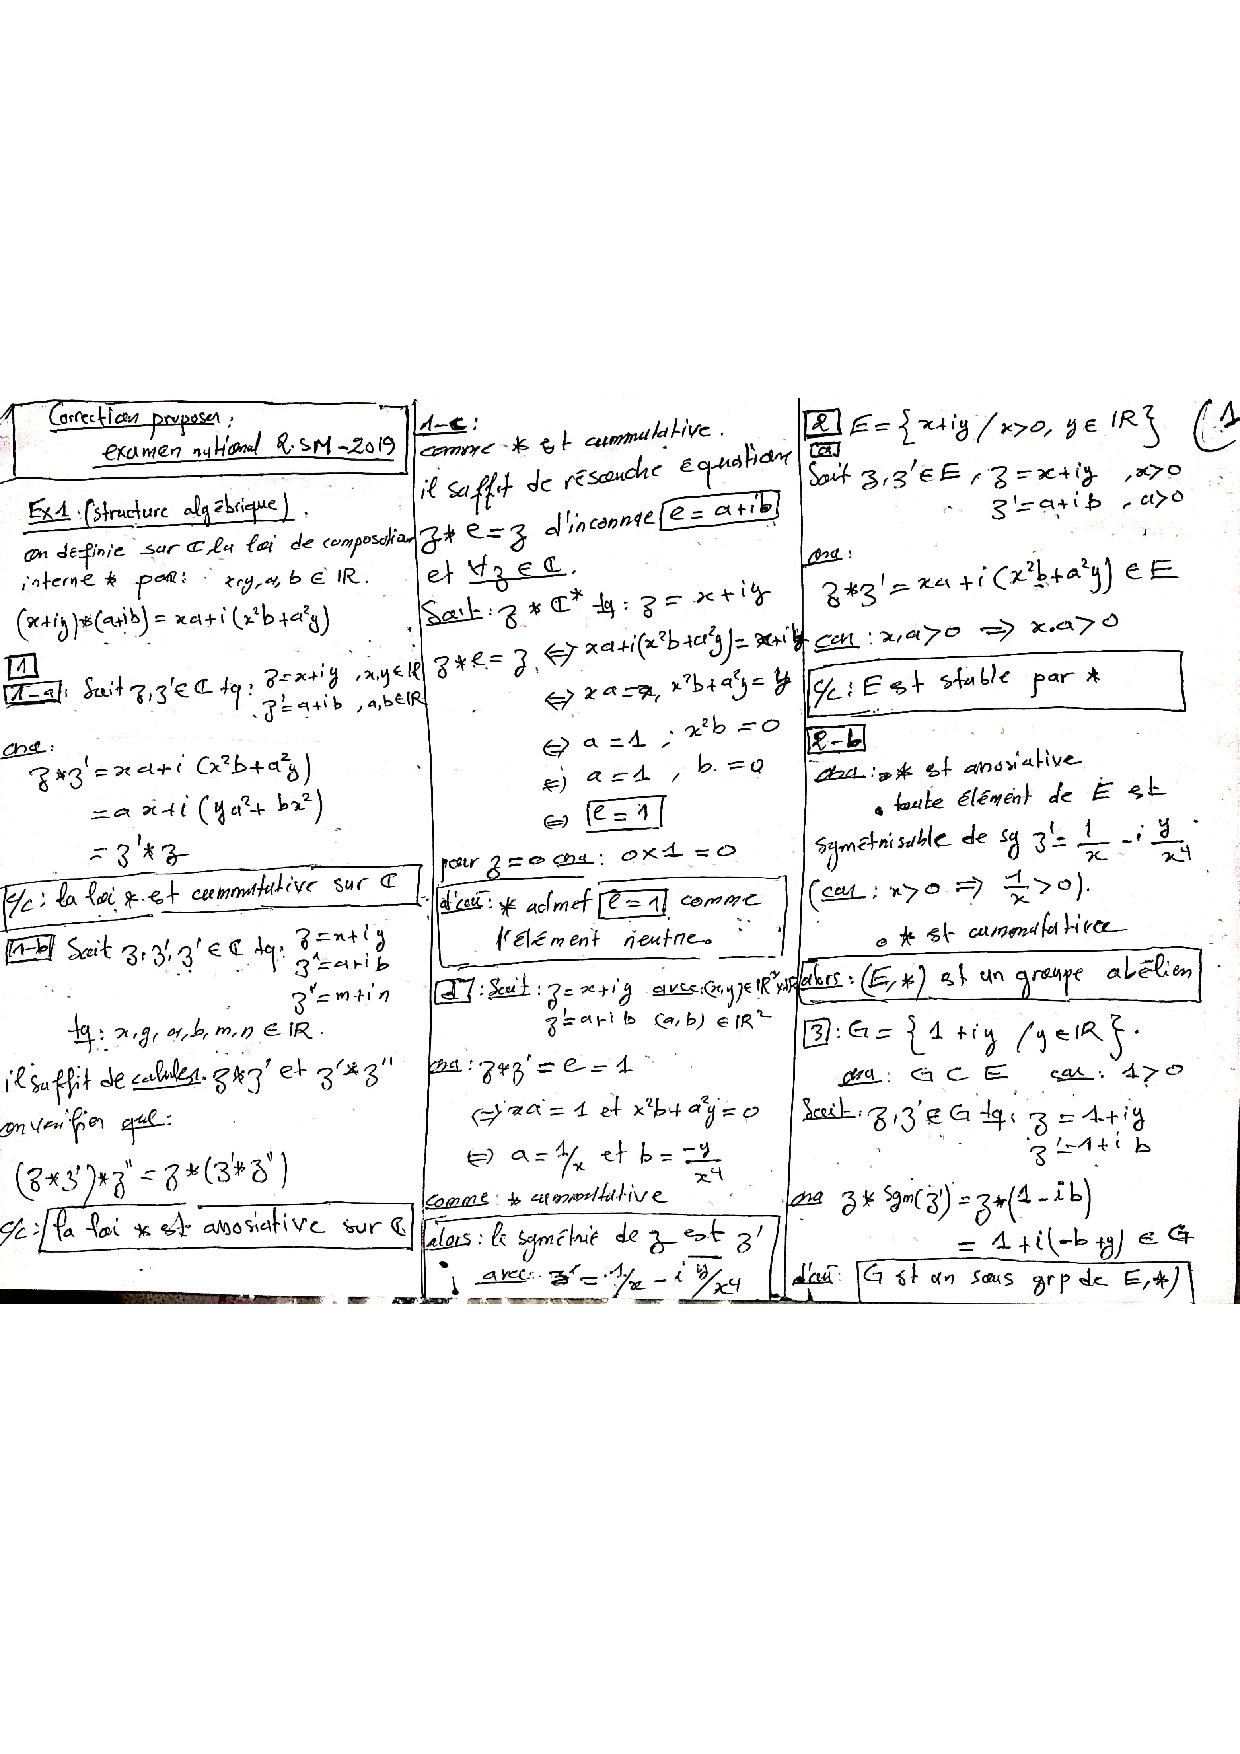 Correction proposer:
examen national 2.SM-2019
Ex1: (structure algébrique).
on définie sur ℂ la loi de composition
interne * par: x,y,a,b ∈ IR.
(x+iy)*(a+ib) = xa+i(x²b+a²y)
1
1-a: Soit z,z'∈ℂ tq: z=x+iy, x,y∈IR
z'=a+ib, a,b∈IR
ona:
z*z' = xa+i(x²b+a²y)
= ax+i(ya²+bx²)
= z'*z
c/c: la loi * est commutative sur ℂ
1-b Soit z,z',z'∈ℂ tq: z=x+iy
z'=a+ib
z''=m+in
tq: x,y,a,b,m,n∈IR.
il suffit de calculer z*z' et z'*z''
on verifier que:
(z*z')*z'' = z*(z'*z'')
c/c: la loi * est assosiative sur ℂ
1-c:
comme * est cummutative.
il suffit de résoudre equation
z*e=z d'inconnue e=a+ib
et ∀z∈ℂ.
Soit: z * ℂ* tq: z=x+iy
z*e=z ⇔ xa+i(x²b+a²y)=x+iy
⇔ xa=x, x²b+a²y=y
⇔ a=1 ; x²b=0
⇔ a=1, b=0
⇔ e=1
pour z=0 ona: 0×1=0
d'où: * admet e=1 comme
l'élément neutre.
d: Soit: z=x+iy avec:(x,y)∈IR*×IR
z'=a+ib (a,b)∈IR²
ona: z*z'=e=1
⇔ xa=1 et x²b+a²y=0
⇔ a=1/x et b=-y/x⁴
comme: * cummutative
alors: le symétrie de z est z'
avec: z'=1/x-i y/x⁴
2 E={x+iy / x>0, y∈IR} (1
a
Soit z,z'∈E, z=x+iy, x>0
z'=a+ib, a>0
ona:
z*z'=xa+i(x²b+a²y)∈E
car: x,a>0 ⇒ x.a>0
c/c: E est stable par *
2-b
ona: • * est assosiative
• toute élément de E est
symétrisable de sy z'=1/x-i y/x⁴
(car: x>0 ⇒ 1/x>0).
• * est cummutative
alors: (E,*) est un groupe abélien
3: G={1+iy / y∈IR}.
ona: G⊂E car: 1>0
Soit: z,z'∈G tq: z=1+iy
z'=1+ib
ona z*sym(z')=z*(1-ib)
=1+i(-b+y)∈G
d'où: G est un sous grp de E,*)